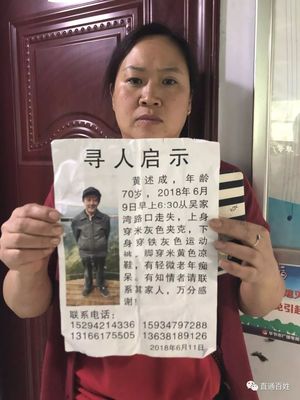 寻人启示
黄述成，年龄
70岁，2018年6月
9日早上6:30从吴家
湾路口走失，上身
穿米灰色夹克，下
身穿铁灰色运动
裤，脚穿米黄色凉
鞋，有轻微老年痴
呆。有知情者请联
系其家人，万分感
谢！
联系电话：
15294214336 15934797288
13166175505 13638189126
2018年6月11日
直通百姓